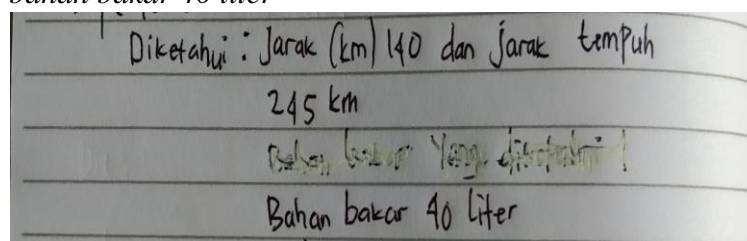 bahan bakar 40 liter
Diketahui : Jarak (km) 140 dan jarak tempuh
245 km
Yang
Bahan bakar 40 Liter